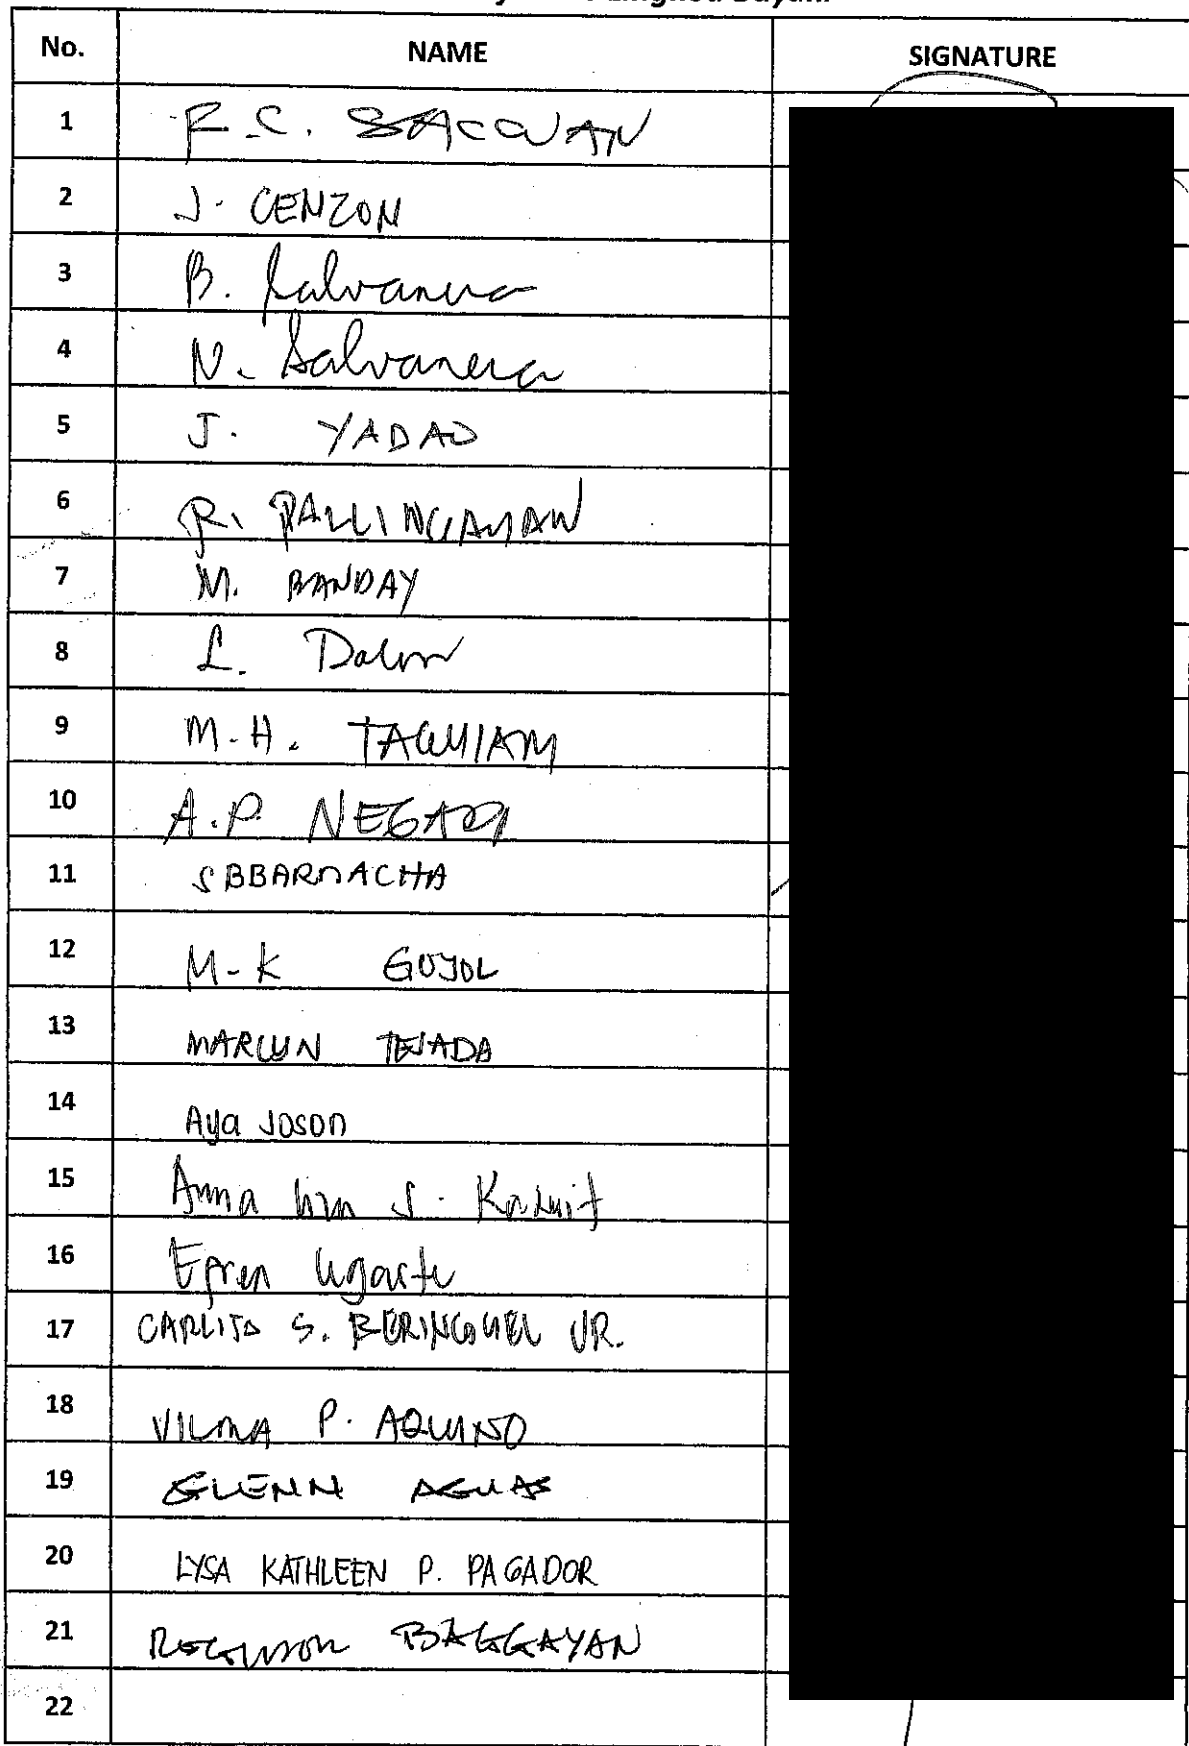 No. NAME SIGNATURE
1 F. C. SACCUAN
2 J. CENZON
3 B. Salvanera
4 N. Salvanera
5 J. YADAO
6 R. PALLINGAYAN
7 M. BANDAY
8 L.
9 M.H. TAGUIAM
10 A.P.
11 SBBARNACHA
12 M-K GUJOL
13 MARLYN TEJADA
14 Aya Joson
15 Anna S.
16 Efren Ugarte
17 CARLITO S. BERINGUEL JR.
18 VILMA P. AQUINO
19 GLENN AGUAS
20 LYSA KATHLEEN P. PAGADOR
21 BAGGAYAN
22